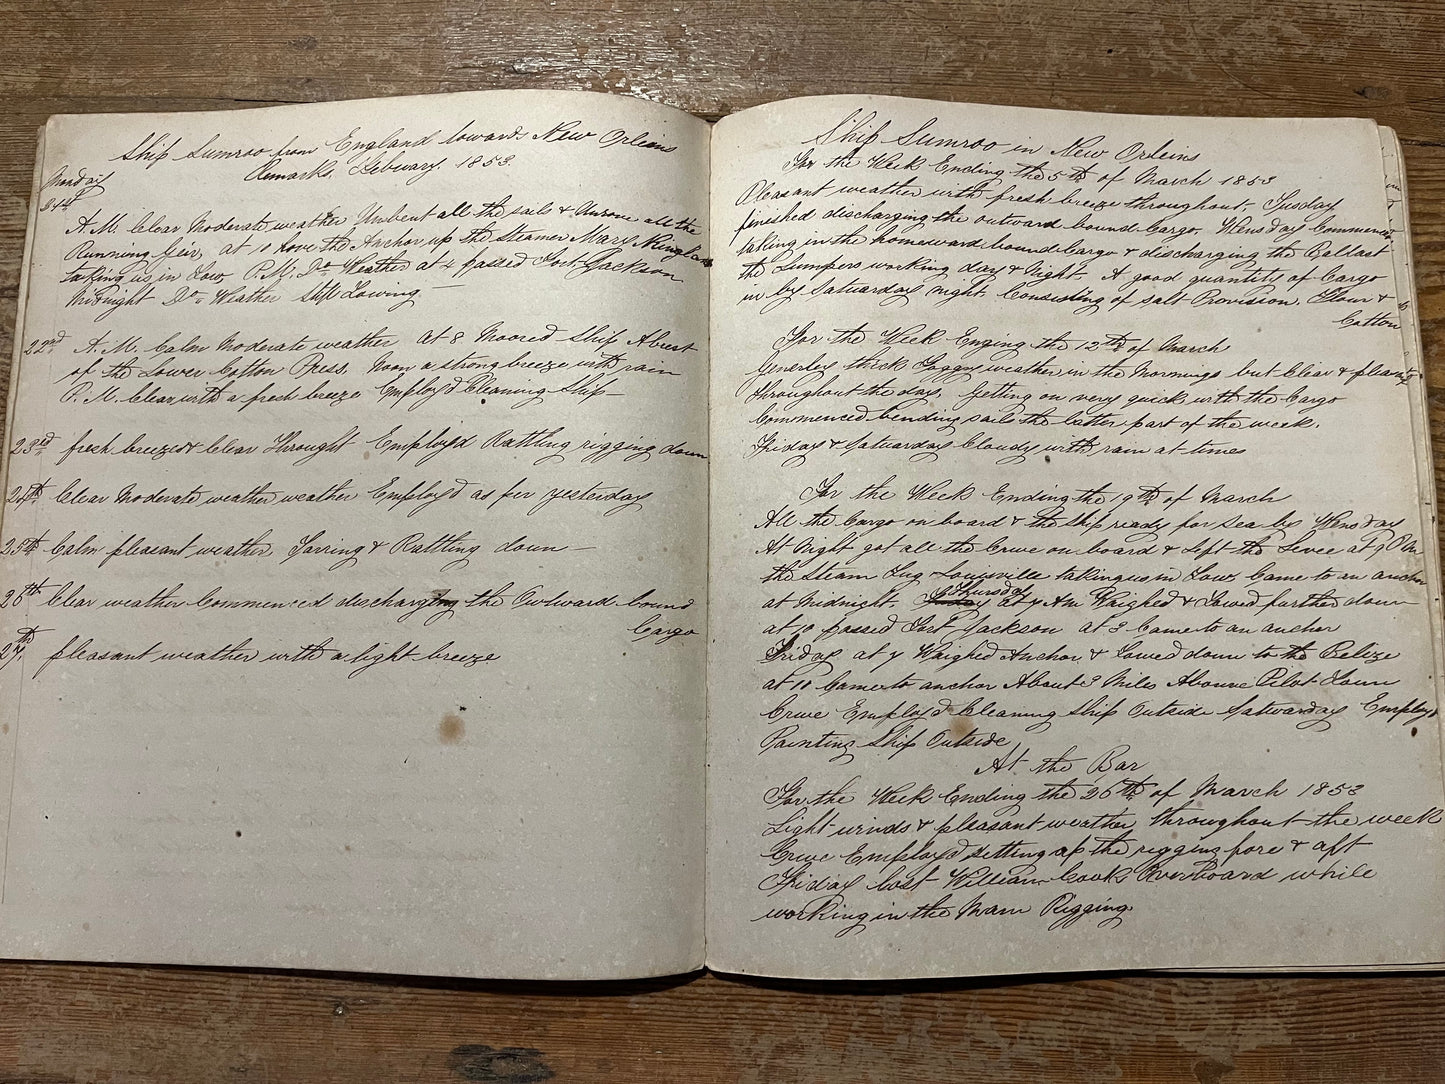 Ship Sumroo from England towards New Orleins
Remarks, Febuary. 1853.
Monday
21st
A.M. Clear Moderate weather Unbent all the sails & Unrove all the
Running Geir, at 10 hove the Anchor up the Steamer Mary Kingland
taking us in tow, P.M. Do Weather at 4 passed Fort Jackson
Midnight Do Weather Still towing —
22nd A.M. Calm Moderate weather at 8 Moored Ship Abrest
of the Lower Cotton Press. Noon a strong breeze with rain
P.M. Clear with a fresh breeze Employ'd Cleaning Ship —
23rd fresh breezes & Clear throught Employ'd Rattling rigging down
24th Clear Moderate weather, weather Employ'd as per yesterday
25th Calm pleasant weather, Tarring & Rattling down —
26th Clear weather Commenced discharging the Outward bound
Cargo
27th pleasant weather with a light breeze
Ship Sumroo in New Orleins
For the Week Ending the 5th of March 1853
Pleasant weather with fresh breeze throughout, Tusday
finished discharging the outward bound Cargo. Wensday Commenced
taking in the homeward bound Cargo & discharging the Ballast
the Lumpers working day & Night. A good quantity of Cargo
in by Satuarday night. Consisting of salt Provision, Flour &
Cotton
For the Week Enging the 12th of March
Generley thick Foggy weather in the Mornings but Clear & pleant
throughout the day, Getting on very quick with the Cargo
Commenced bending sails the latter part of the week.
Friday & Satuarday Cloudy with rain at times
For the Week Ending the 19th of March
All the Cargo on board & the Ship ready for Sea by Wensday
At Night got all the Crue on board & Left the Levee at 9 P.M
the Steam Tug Louisville taking us in Tow, Came to an anchor
at Midnight. Thursday at 4 Am Waighed & Towed further down
at 10 passed Fort Jackson at 3 Came to an anchor
Friday at 4 Waighed Anchor & Towed down to the Belize
at 10 Came to anchor About 3 Miles Abouve Pilot Town
Crue Employ'd Cleaning Ship Outside Satuarday Employ'd
Painting Ship Outside
At the Bar
For the Week Ending the 26th of March 1853
Light winds & pleasant weather throughout the week
Crue Employ'd setting up the rigging fore & aft
Friday lost William Cook Overboard while
working in the Main Rigging